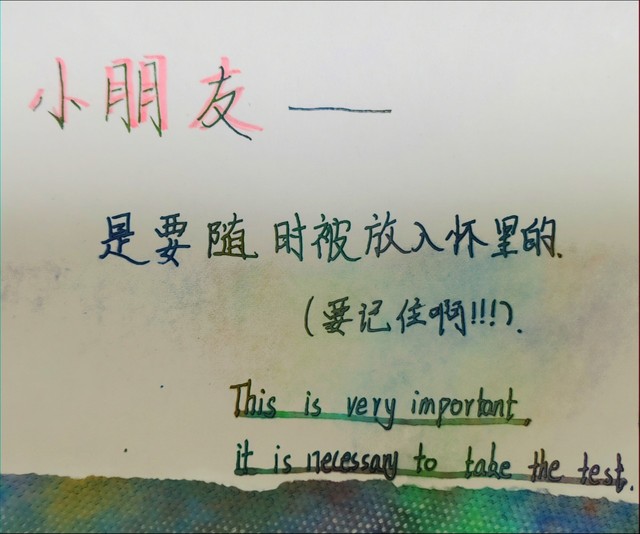 小朋友——
是要随时被放入怀里的.
(要记住啊!!!).
This is very important,
it is necessary to take the test.